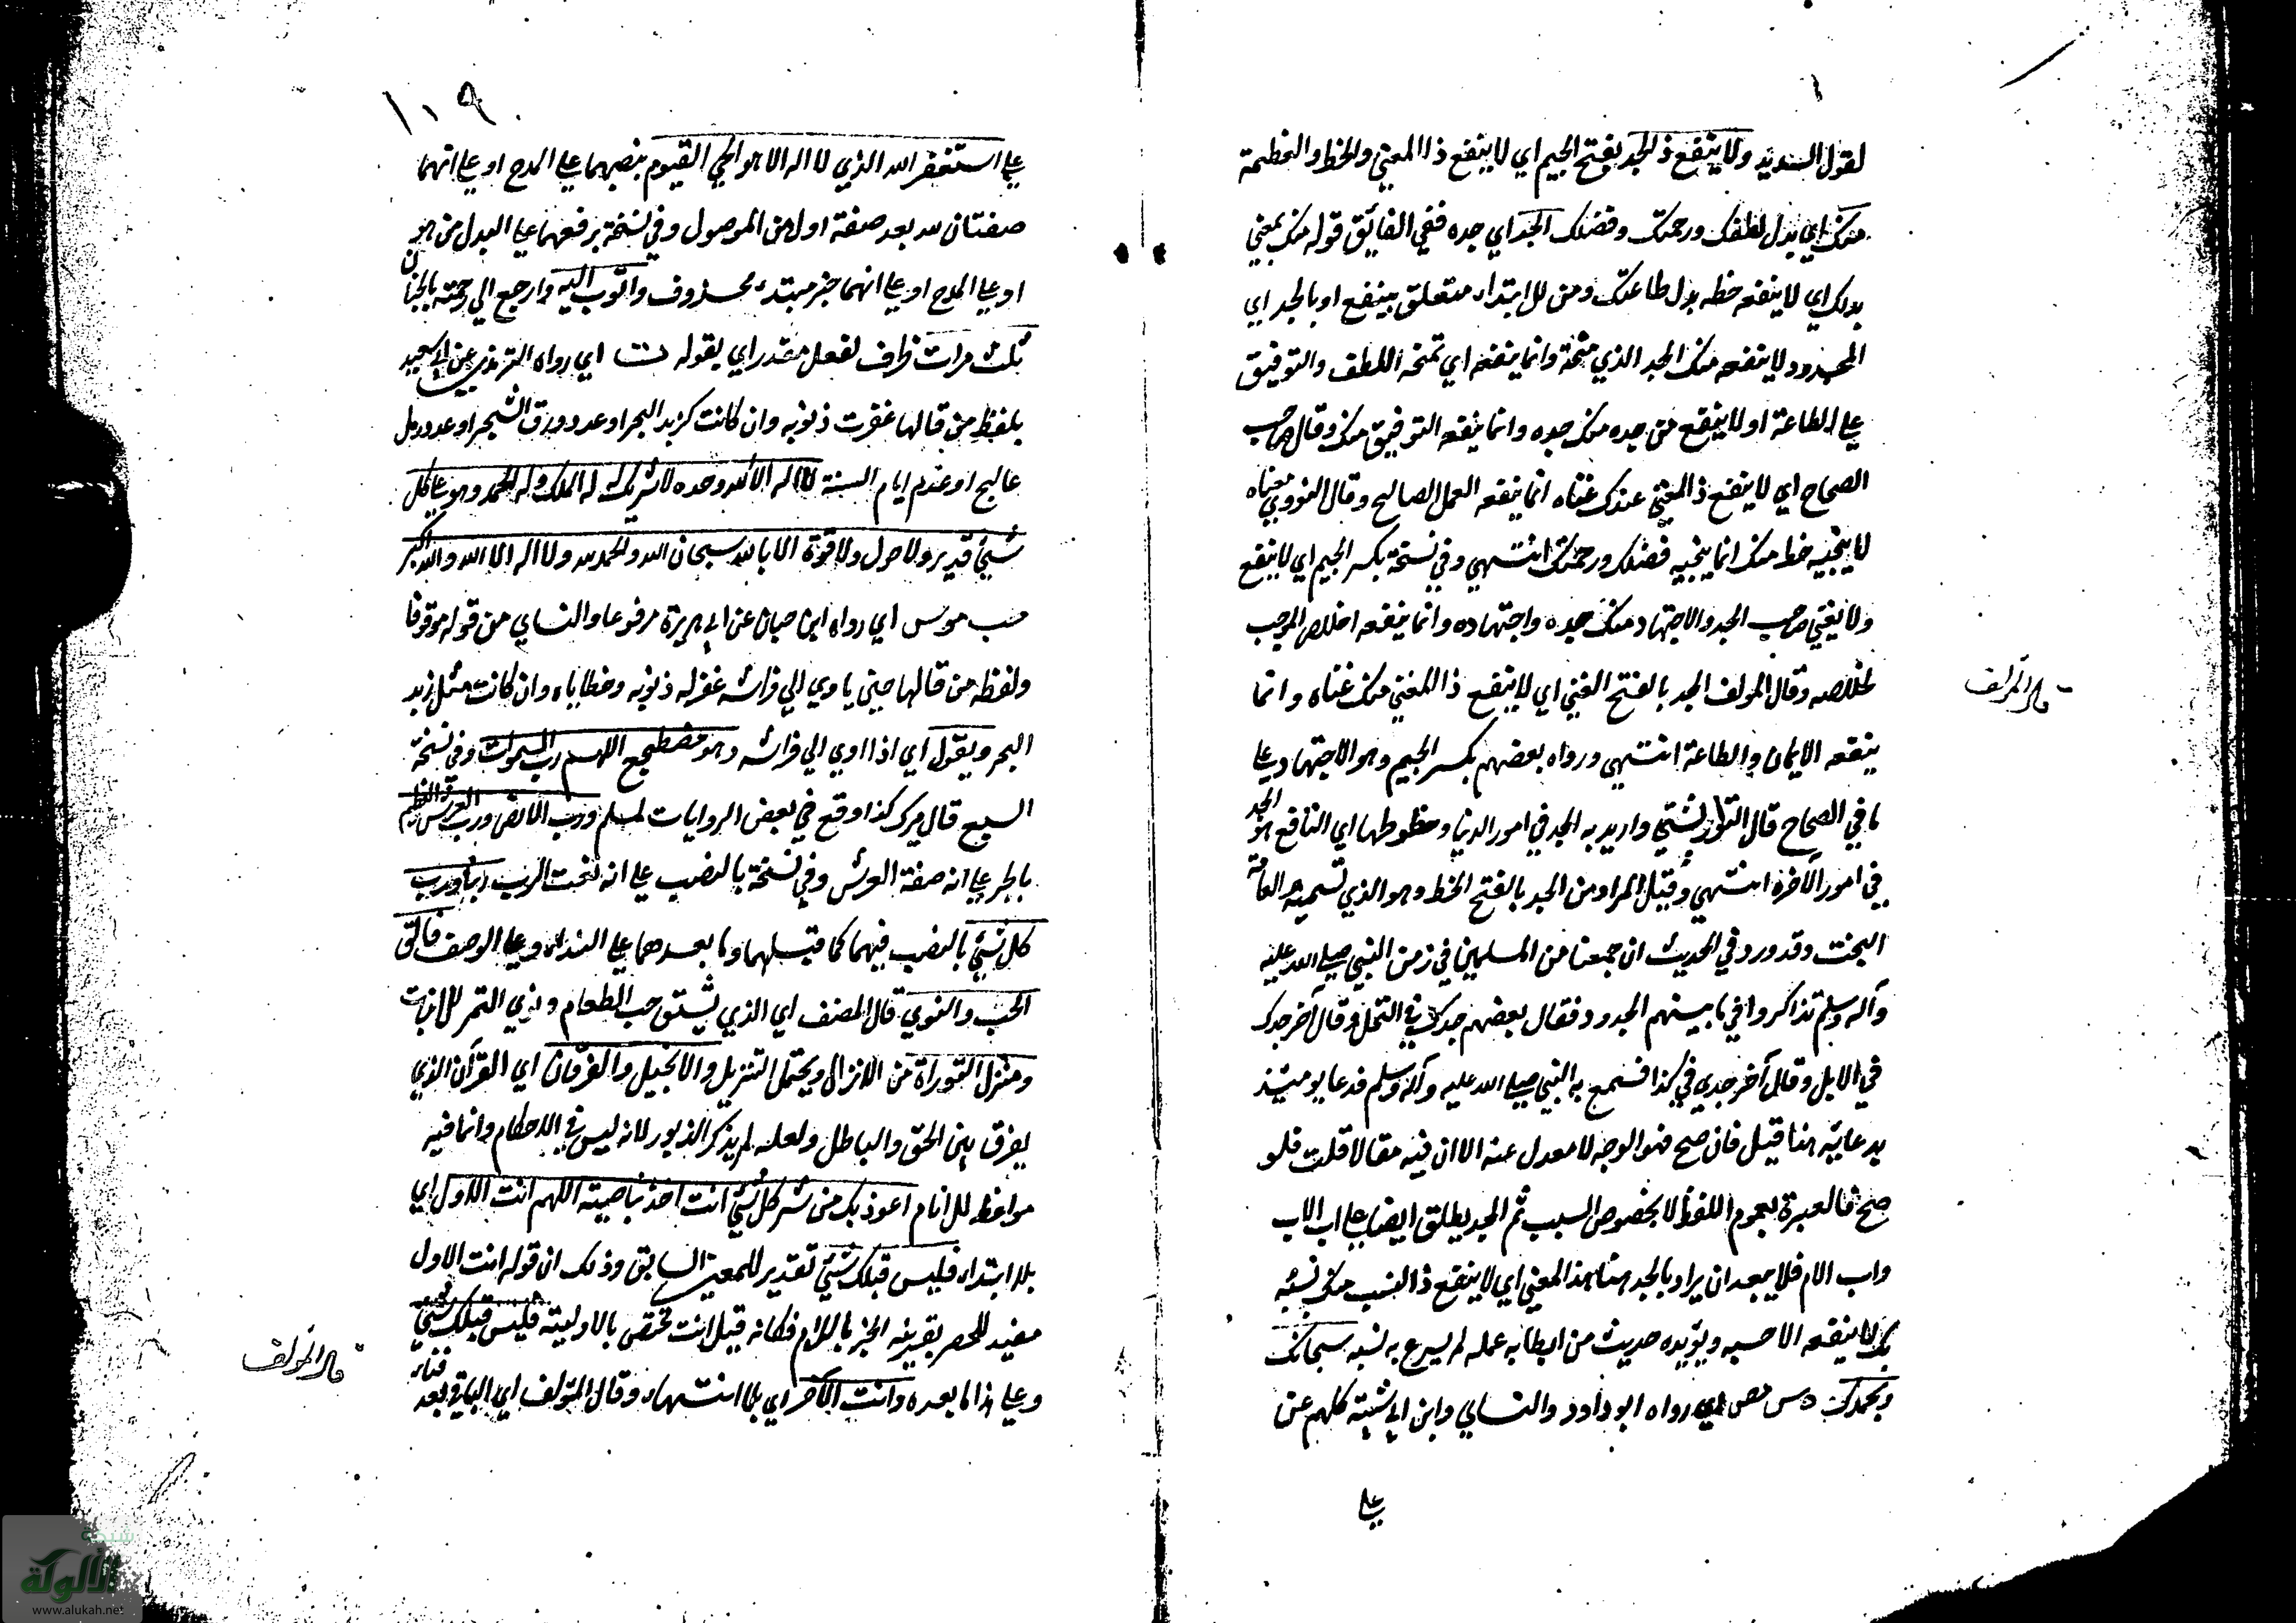 لقول السديد ولا ينفع ذا الجد بفتح الجيم اي لا ينفع ذا المعني والحظ والعظمة
منك اي بدل لطفك ورحمتك وفضلك الجد اي جده ففي الفائق قوله منك بمعني
بدلك اي لا ينفعه حظه بدل طاعتك ومن للابتداء متعلق بينفع او بالجد اي
المجدود لا ينفعه منك الجد الذي منحته وانما ينفعه اي تمنحه اللطف والتوفيق
علي الطاعة او لا ينفع من جده منك جده وانما ينفعه التوفيق منك وقال صاحب
الصحاح اي لا ينفع ذا الغني عندك غناه انما ينفعه العمل الصالح وقال النووي معناه
لا ينجيه حظ منك انما ينجيه فضلك ورحمتك انتهي وفي نسخة بكسر الجيم اي لا ينفع
ولا يغني صاحب الجد والاجتهاد منك جده واجتهاده وانما ينفعه اخلاص الموجب
لخلاصه وقال المولف الجد بالفتح الغني اي لا ينفع ذا الغني منك غناه وانما
ينفعه الايمان والطاعة انتهي ورواه بعضهم بكسر الجيم وهو الاجتهاد علي
ما في الصحاح قال التوربشتي واريد به الجد في امور الدنيا وحظوظها اي النافع هو الجد
في امور الآخرة انتهي وقيل المراد من الجد بالفتح الحظ وهو الذي تسميه العامة
البخت وقد ورد في الحديث ان جمعا من المسلمين في زمن النبي صلي الله عليه
وآله وسلم تذاكروا في ما بينهم الجدود فقال بعضهم جدك في النخل وقال آخر جدك
في الابل وقال آخر جدي في كذا فسمع به النبي صلي الله عليه وآله وسلم فدعا يومئذ
بدعائه هذا قيل فان صح فهو الوجه لا معدل عنه الا ان فيه مقالا قلت فلو
صح فالعبرة بعموم اللفظ لا بخصوص السبب ثم الجد يطلق ايضا علي اب الاب
واب الام فلا يبعد ان يراد بالجد هنا هذا المعني اي لا ينفع ذا النسب منك نسبه
بل لا ينفعه الا حسبه ويؤيده حديث من ابطا به عمله لم يسرع به نسبه سبحانك
وبحمدك د س مص اي رواه ابو داود والنساي وابن ابي شيبة كلهم عن
علي
قال المولف
١٠٩
علي استغفر الله الذي لا اله الا هو الحي القيوم بنصبهما علي المدح او علي انهما
صفتان لله بعد صفة اولى من الموصول وفي نسخة برفعهما علي البدل من هو
او علي المدح او علي انهما خبر مبتدء محذوف واتوب اليه وارجع الي رحمته بالجنان
ثلث مرات ظرف لفعل مقدر اي يقوله ت اي رواه الترمذي عن ابي سعيد
بلفظ من قالها غفرت ذنوبه وان كانت كزبد البحر او عدد ورق الشجر او عدد رمل
عالج او عدد ايام السنة لا اله الا الله وحده لا شريك له له الملك وله الحمد وهو علي كل
شيئ قدير ولا حول ولا قوة الا بالله سبحان الله والحمد لله ولا اله الا الله والله اكبر
حب مو س اي رواه ابن حبان عن ابي هريرة مرفوعا والنساي من قوله موقوفا
ولفظه من قالها حين ياوي الي فراشه غفر له ذنوبه وخطاياه وان كانت مثل زبد
البحر ويقول اي اذا اوي الي فراشه وهو مضطجع اللهم رب السموات وفي نسخة
السبع قال ميرك كذا وقع في بعض الروايات لمسلم ورب الارض ورب العرش العظيم
بالجر علي انه صفة العرش وفي نسخة بالنصب علي انه نعت الرب ربنا ورب
كل شيئ بالنصب فيهما كما قبلهما وما بعدهما علي النداء وعلي الوصف فالق
الحب والنوي قال المصنف اي الذي يشق حب الطعام ونوي التمر للانبات
ومنزل التوراة من الانزال ويحتمل التنزيل والانجيل والفرقان اي القرآن الذي
يفرق بين الحق والباطل ولعله لم يذكر الزبور لانه ليس في الاحكام وانما فيه
مواعظ للانام اعوذ بك من شر كل شيئ انت آخذ بناصيته اللهم انت الاول اي
بلا ابتداء فليس قبلك شيئ تقدير للمعني السابق وذلك ان قوله انت الاول
مفيد للحصر بقرينة الخبر باللام فكانه قيل انت مختص بالاولية فليس قبلك شيئ
وعلي هذا ما بعده وانت الآخر اي بلا انتهاء وقال المؤلف اي الباقي بعد فناء
قال المولف
شبكة
الألوكة
www.alukah.net